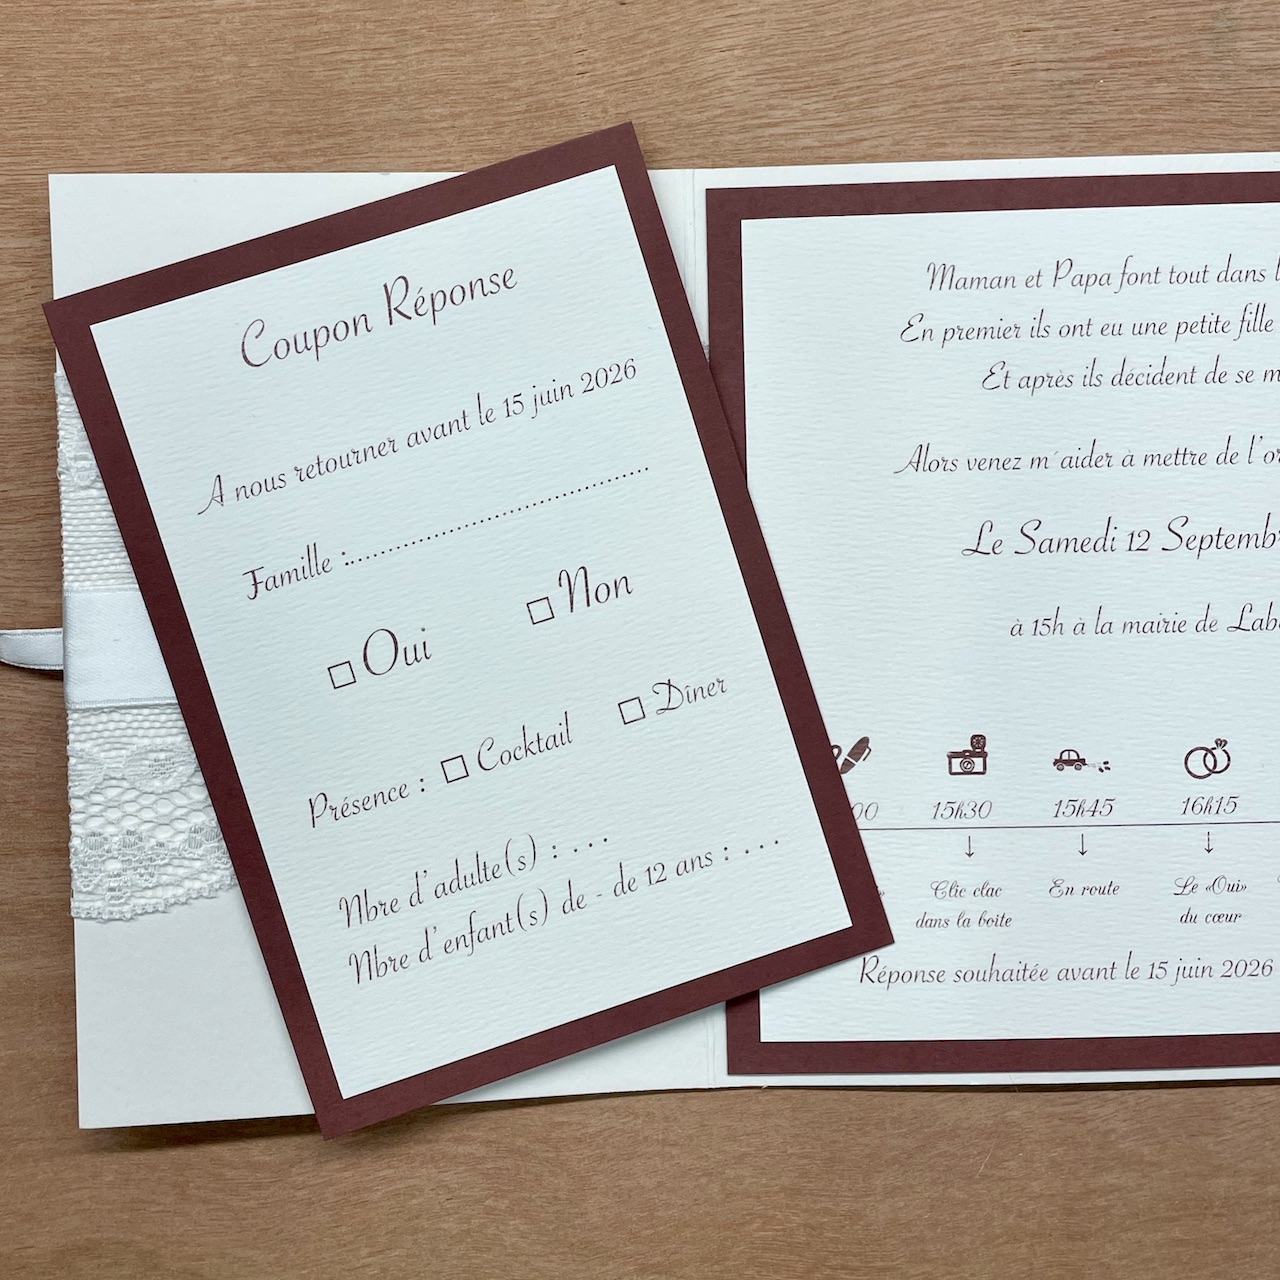 Coupon Réponse
A nous retourner avant le 15 juin 2026
Famille :................................................
Oui
Non
Présence :
Cocktail
Dîner
Nbre d'adulte(s) : . . .
Nbre d'enfant(s) de - de 12 ans : . . .
Maman et Papa font tout dans
En premier ils ont eu une petite fille
Et après ils décident de se
Alors venez m´aider à mettre de
Le Samedi 12
à 15h à la mairie de
15h30
15h45
16h15
Clic clac
dans la boite
En route
Le «Oui»
du cœur
Réponse souhaitée avant le 15 juin 2026